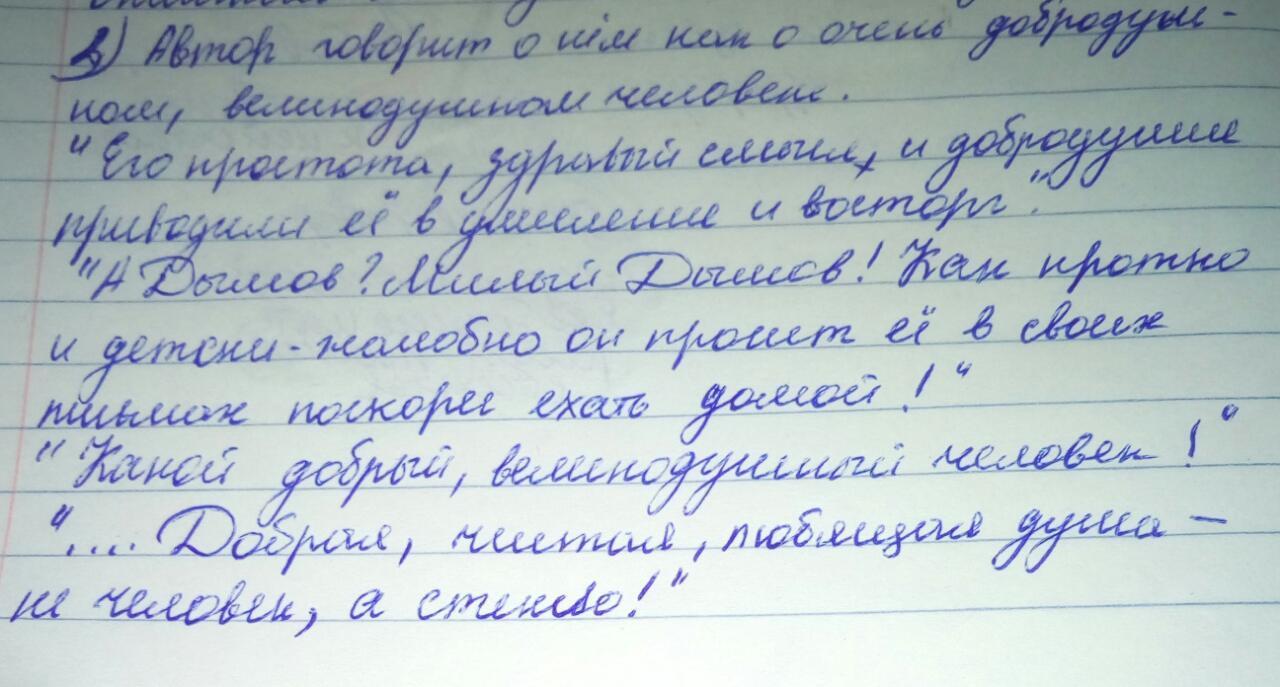 3) Автор говорит о нём как о очень добродуш-
ном, великодушном человеке.
"Его простота, здравый смысл, и добродушие
приводили её в умиление и восторг".
"А Дымов? Милый Дымов! Как кротко
и детски-жалобно он просит её в своих
письмах поскорее ехать домой!"
"Какой добрый, великодушный человек!"
".... Добрая, чистая, любящая душа -
не человек, а стекло!"